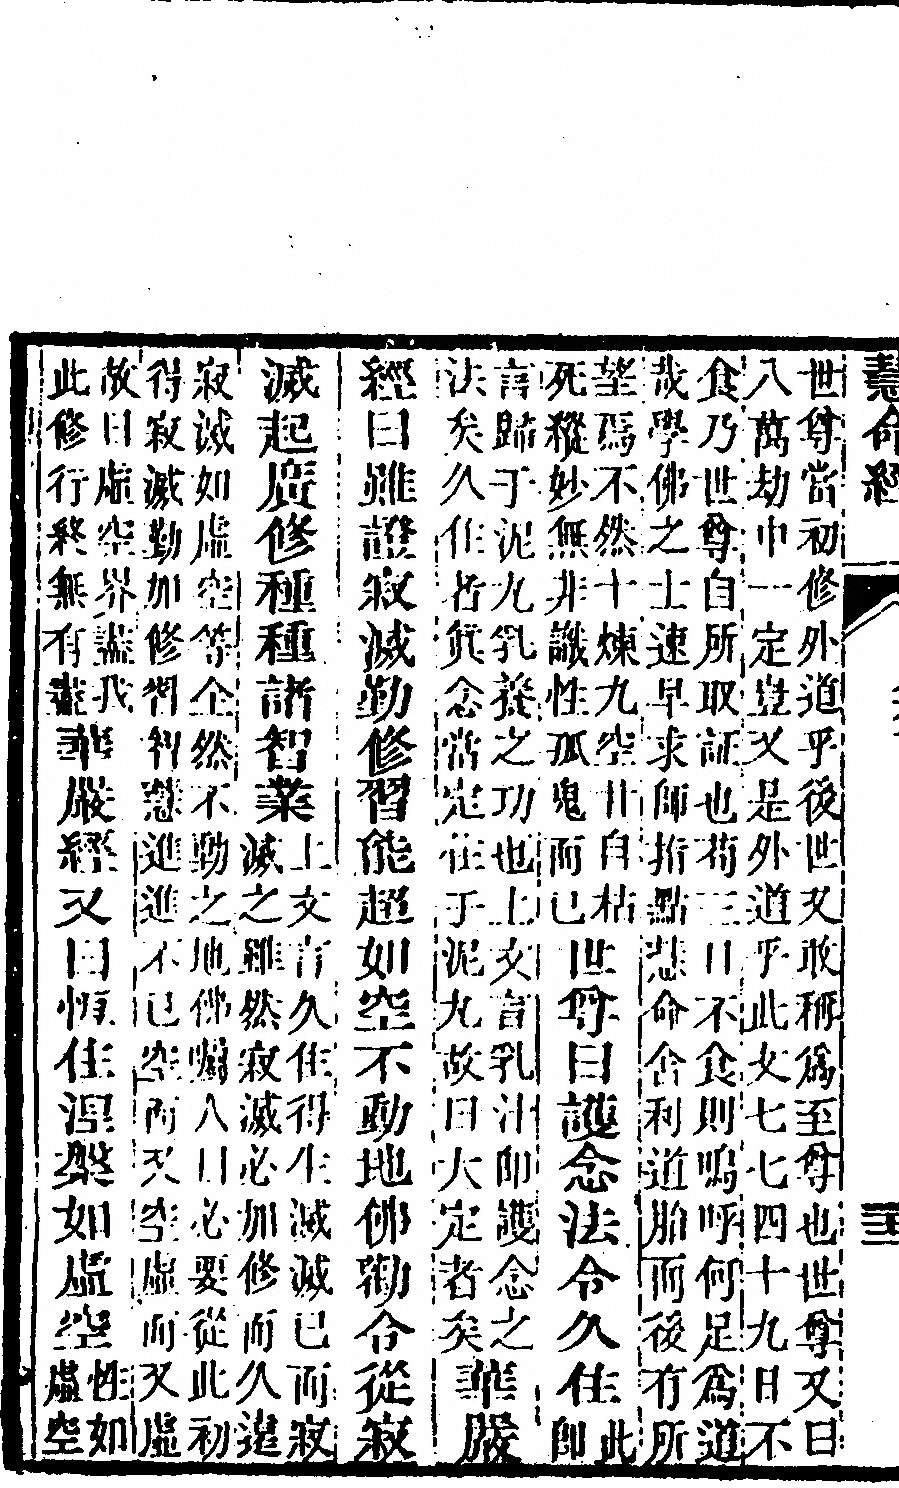 慧命經
世尊當初修外道乎後世又敢稱爲至尊也世尊又曰
八萬劫中一定豈又是外道乎此文七七四十九日不
食乃世尊自所取証也苟三日不食則嗚呼何足爲道
哉學佛之士速早求師指點慧命舍利道胎而後有所
望焉不然十煉九空甘自枯
死縱妙無非識性孤鬼而已
世尊曰護念法令久住
此
即
言歸于泥丸乳養之功也上文言乳汁即護念之
法矣久住者眞念當定住于泥丸故曰大定者矣
華嚴
經曰雖證寂滅勤修習能超如空不動地佛勸令從寂
滅起廣修種種諸智業
上文言久住得生滅滅已而寂
滅之雖然寂滅必加修而久違
寂滅如虛空等全然不動之地佛囑人曰必要從此初
得寂滅勤加修習智慧進進不已空而又空虛而又虛
故曰虛空界盡我
此修行終無有盡
華嚴經又曰恒住涅槃如虛空
性如
虛空